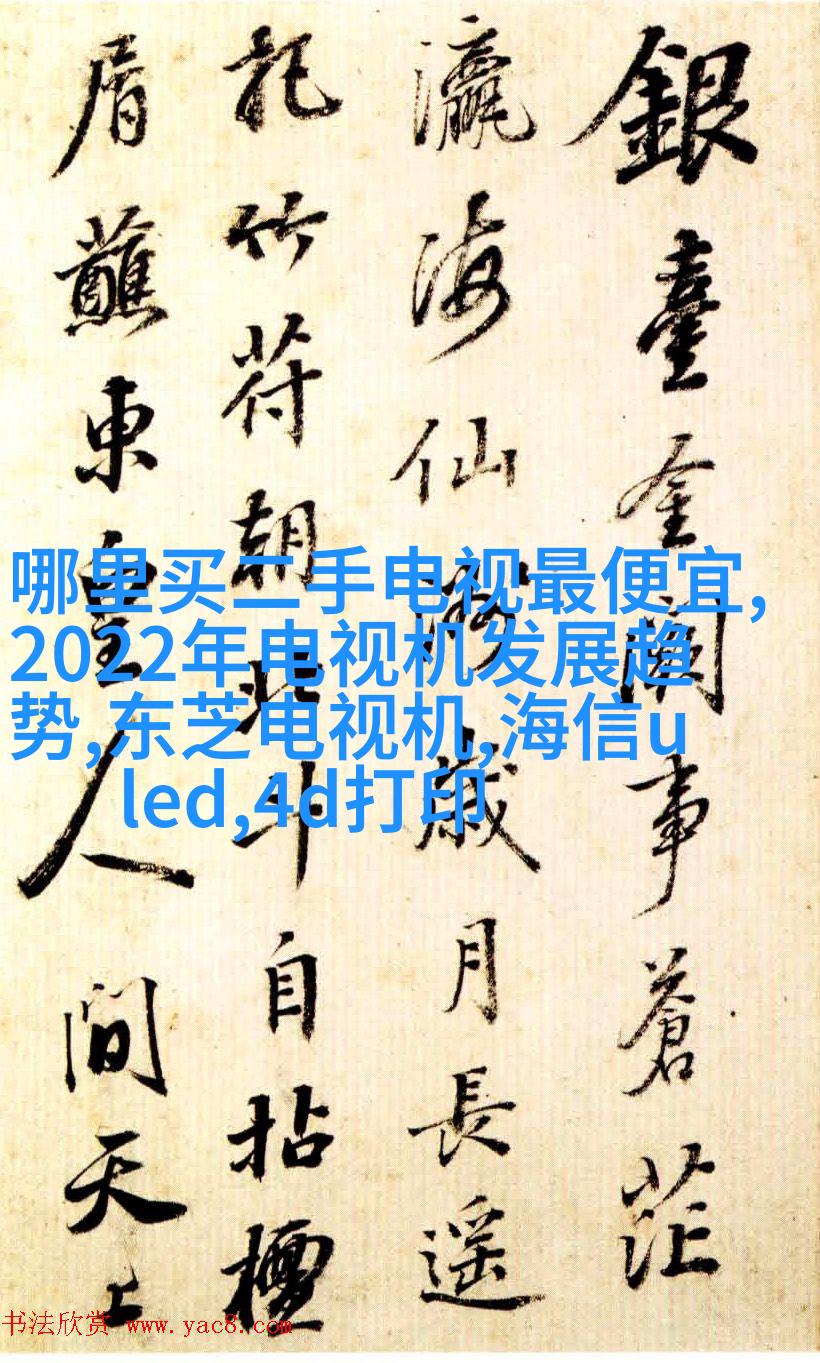 銀臺金闕事蒼茫
瀛海仙游歲月長遥
記竹符朝北斗自拈檀
屑蘸東皇人間天上
哪里买二手电视最便宜,
2022年电视机发展趋
势,东芝电视机,海信u
led,4d打印
书法欣赏 www.yac8.com